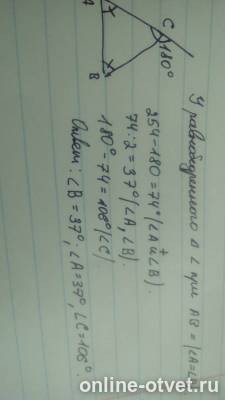 У равнобедренного Δ ∠ при AB = (∠A=∠
254-180=74° (∠A и ∠B).
+
74:2=37° (∠A, ∠B).
180°-74=106° (∠C)
Ответ: ∠B=37°, ∠A=37°, ∠C=106°.
C
180°
A
B
online-otvet.ru